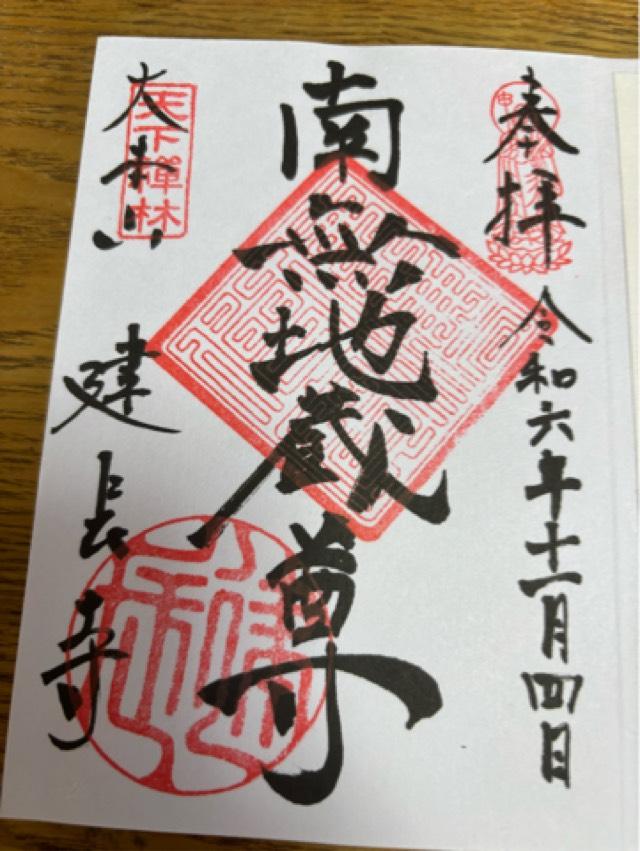 奉拝
令和六年十一月四日
南無地蔵尊
天下禅林
大本山
建長寺